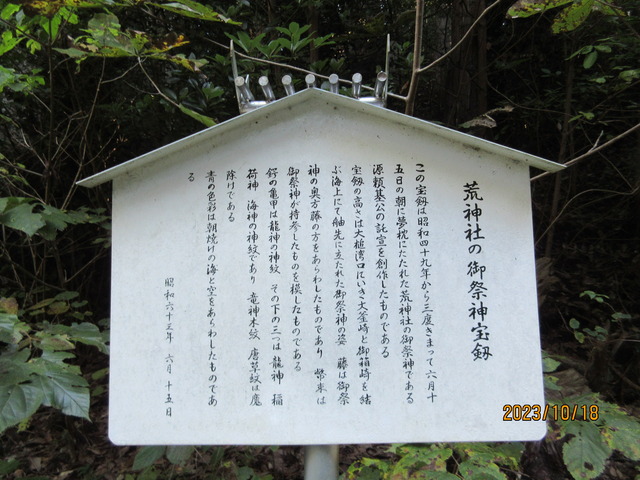 荒神社の御祭神宝釼
この宝釼は昭和四十九年から三度きまって六月十
五日の朝に夢枕にたたれた荒神社の御祭神である
源頼基公の託宣を創作したものである
宝釼の高さは大槌湾口にいき大釜崎と御箱崎を結
ぶ海上にて舳先に立たれた御祭神の姿 藤は御祭
神の奥方藤の方をあらわしたものであり 幣束は
御祭神が持参したものを模したものである
鍔の亀甲は龍神の神紋 その下の三つは 龍神 稲
荷神 海神の神紋であり 竜神木紋 唐草紋は魔
除けである
青の色彩は朝焼けの海と空をあらわしたものであ
る
昭和六十三年 六月 十五日
2023/10/18